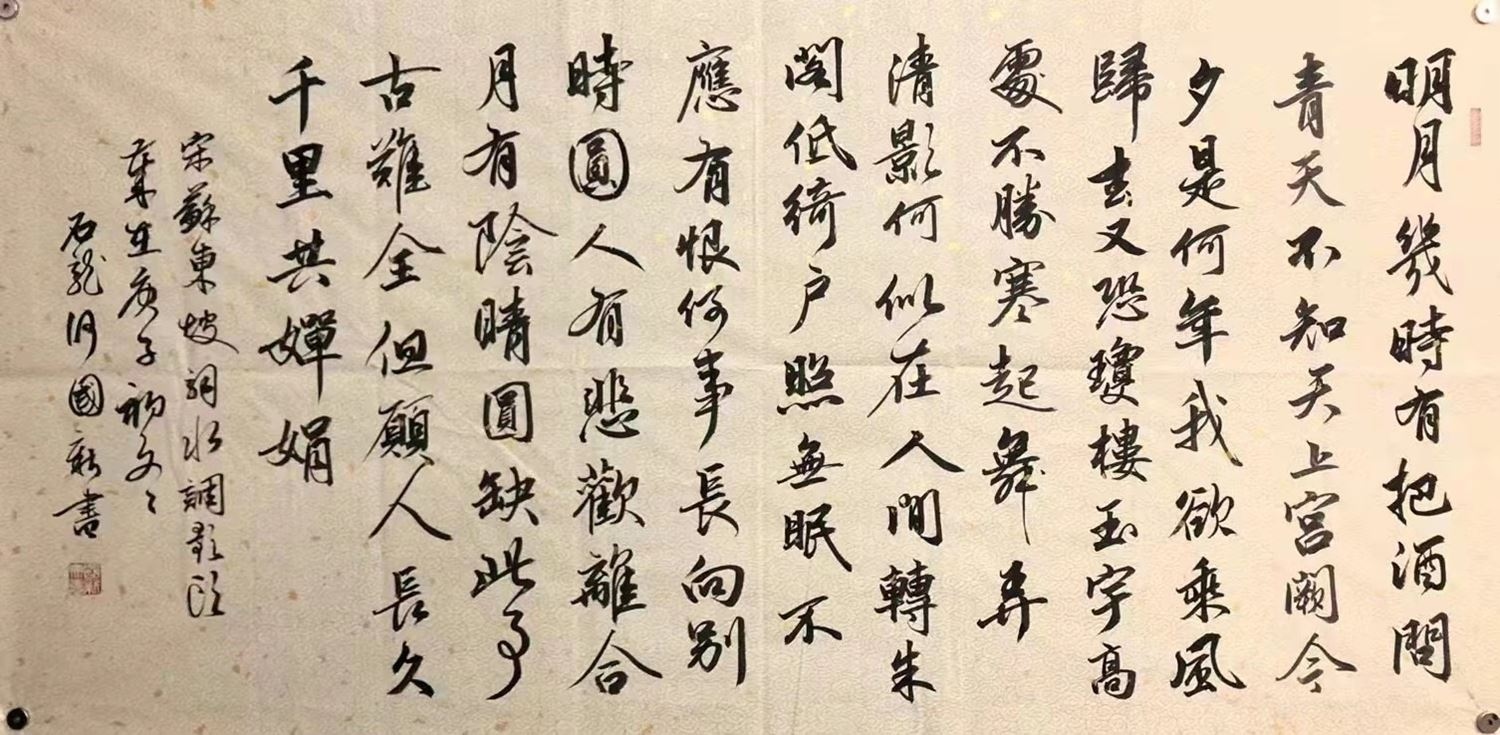 明月幾時有把酒問
青天不知天上宮闕今
夕是何年我欲乘風
歸去又恐瓊樓玉宇高
處不勝寒起舞弄
清影何似在人間轉朱
閣低綺户照無眠不
應有恨何事長向别
時圓人有悲歡離合
月有陰晴圓缺此事
古難全但願人長久
千里共嬋娟
宋蘇東坡詞水調歌頭
庚子初文
石龍 國 書